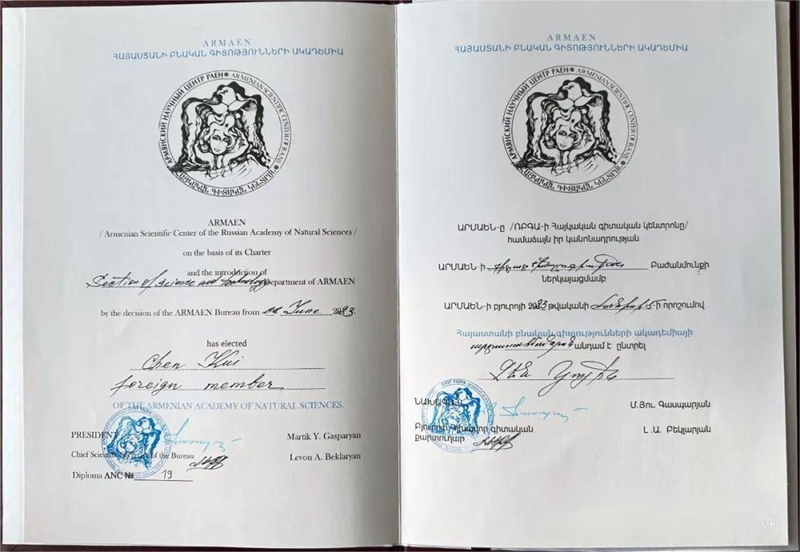 ARMAEN
ՀԱՅԱՍՏԱՆԻ ԲՆԱԿԱՆ ԳԻՏՈՒԹՅՈՒՆՆԵՐԻ ԱԿԱԴԵՄԻԱ
АРМЯНСКИЙ НАУЧНЫЙ ЦЕНТР РАЕН ARMENIAN SCIENTIFIC CENTER OF RANS
ARMAEN
/ Armenian Scientific Center of the Russian Academy of Natural Sciences /
on the basis of its Charter
and the introduction of
Section of science and technology Department of ARMAEN
by the decision of the ARMAEN Bureau from June
has elected
Chen Kui
foreign member
OF THE ARMENIAN ACADEMY OF NATURAL SCIENCES.
PRESIDENT Martik Y. Gasparyan
Chief Scientific of the Bureau Levon A. Beklaryan
Diploma ANC № 19
ARMAEN
ՀԱՅԱՍՏԱՆԻ ԲՆԱԿԱՆ ԳԻՏՈՒԹՅՈՒՆՆԵՐԻ ԱԿԱԴԵՄԻԱ
АРМЯНСКИЙ НАУЧНЫЙ ЦЕНТР РАЕН ARMENIAN SCIENTIFIC CENTER OF RANS
ԱՐՄԱԵՆ-ը /ՌԲԳԱ-ի Հայկական գիտական կենտրոնը/
համաձայն իր կանոնադրության
ԱՐՄԱԵՆ-ի Բաժանմունքի
ներկայացմամբ
ԱՐՄԱԵՆ-ի բյուրոյի թվականի որոշումով
Հայաստանի բնական գիտությունների ակադեմիայի
անդամ է ընտրել
Չեն
Նախագահ Մ.Յու. Գասպարյան
Բյուրոյի Գլխավոր գիտական Լ.Ա. Բեկլարյան
քարտուղար